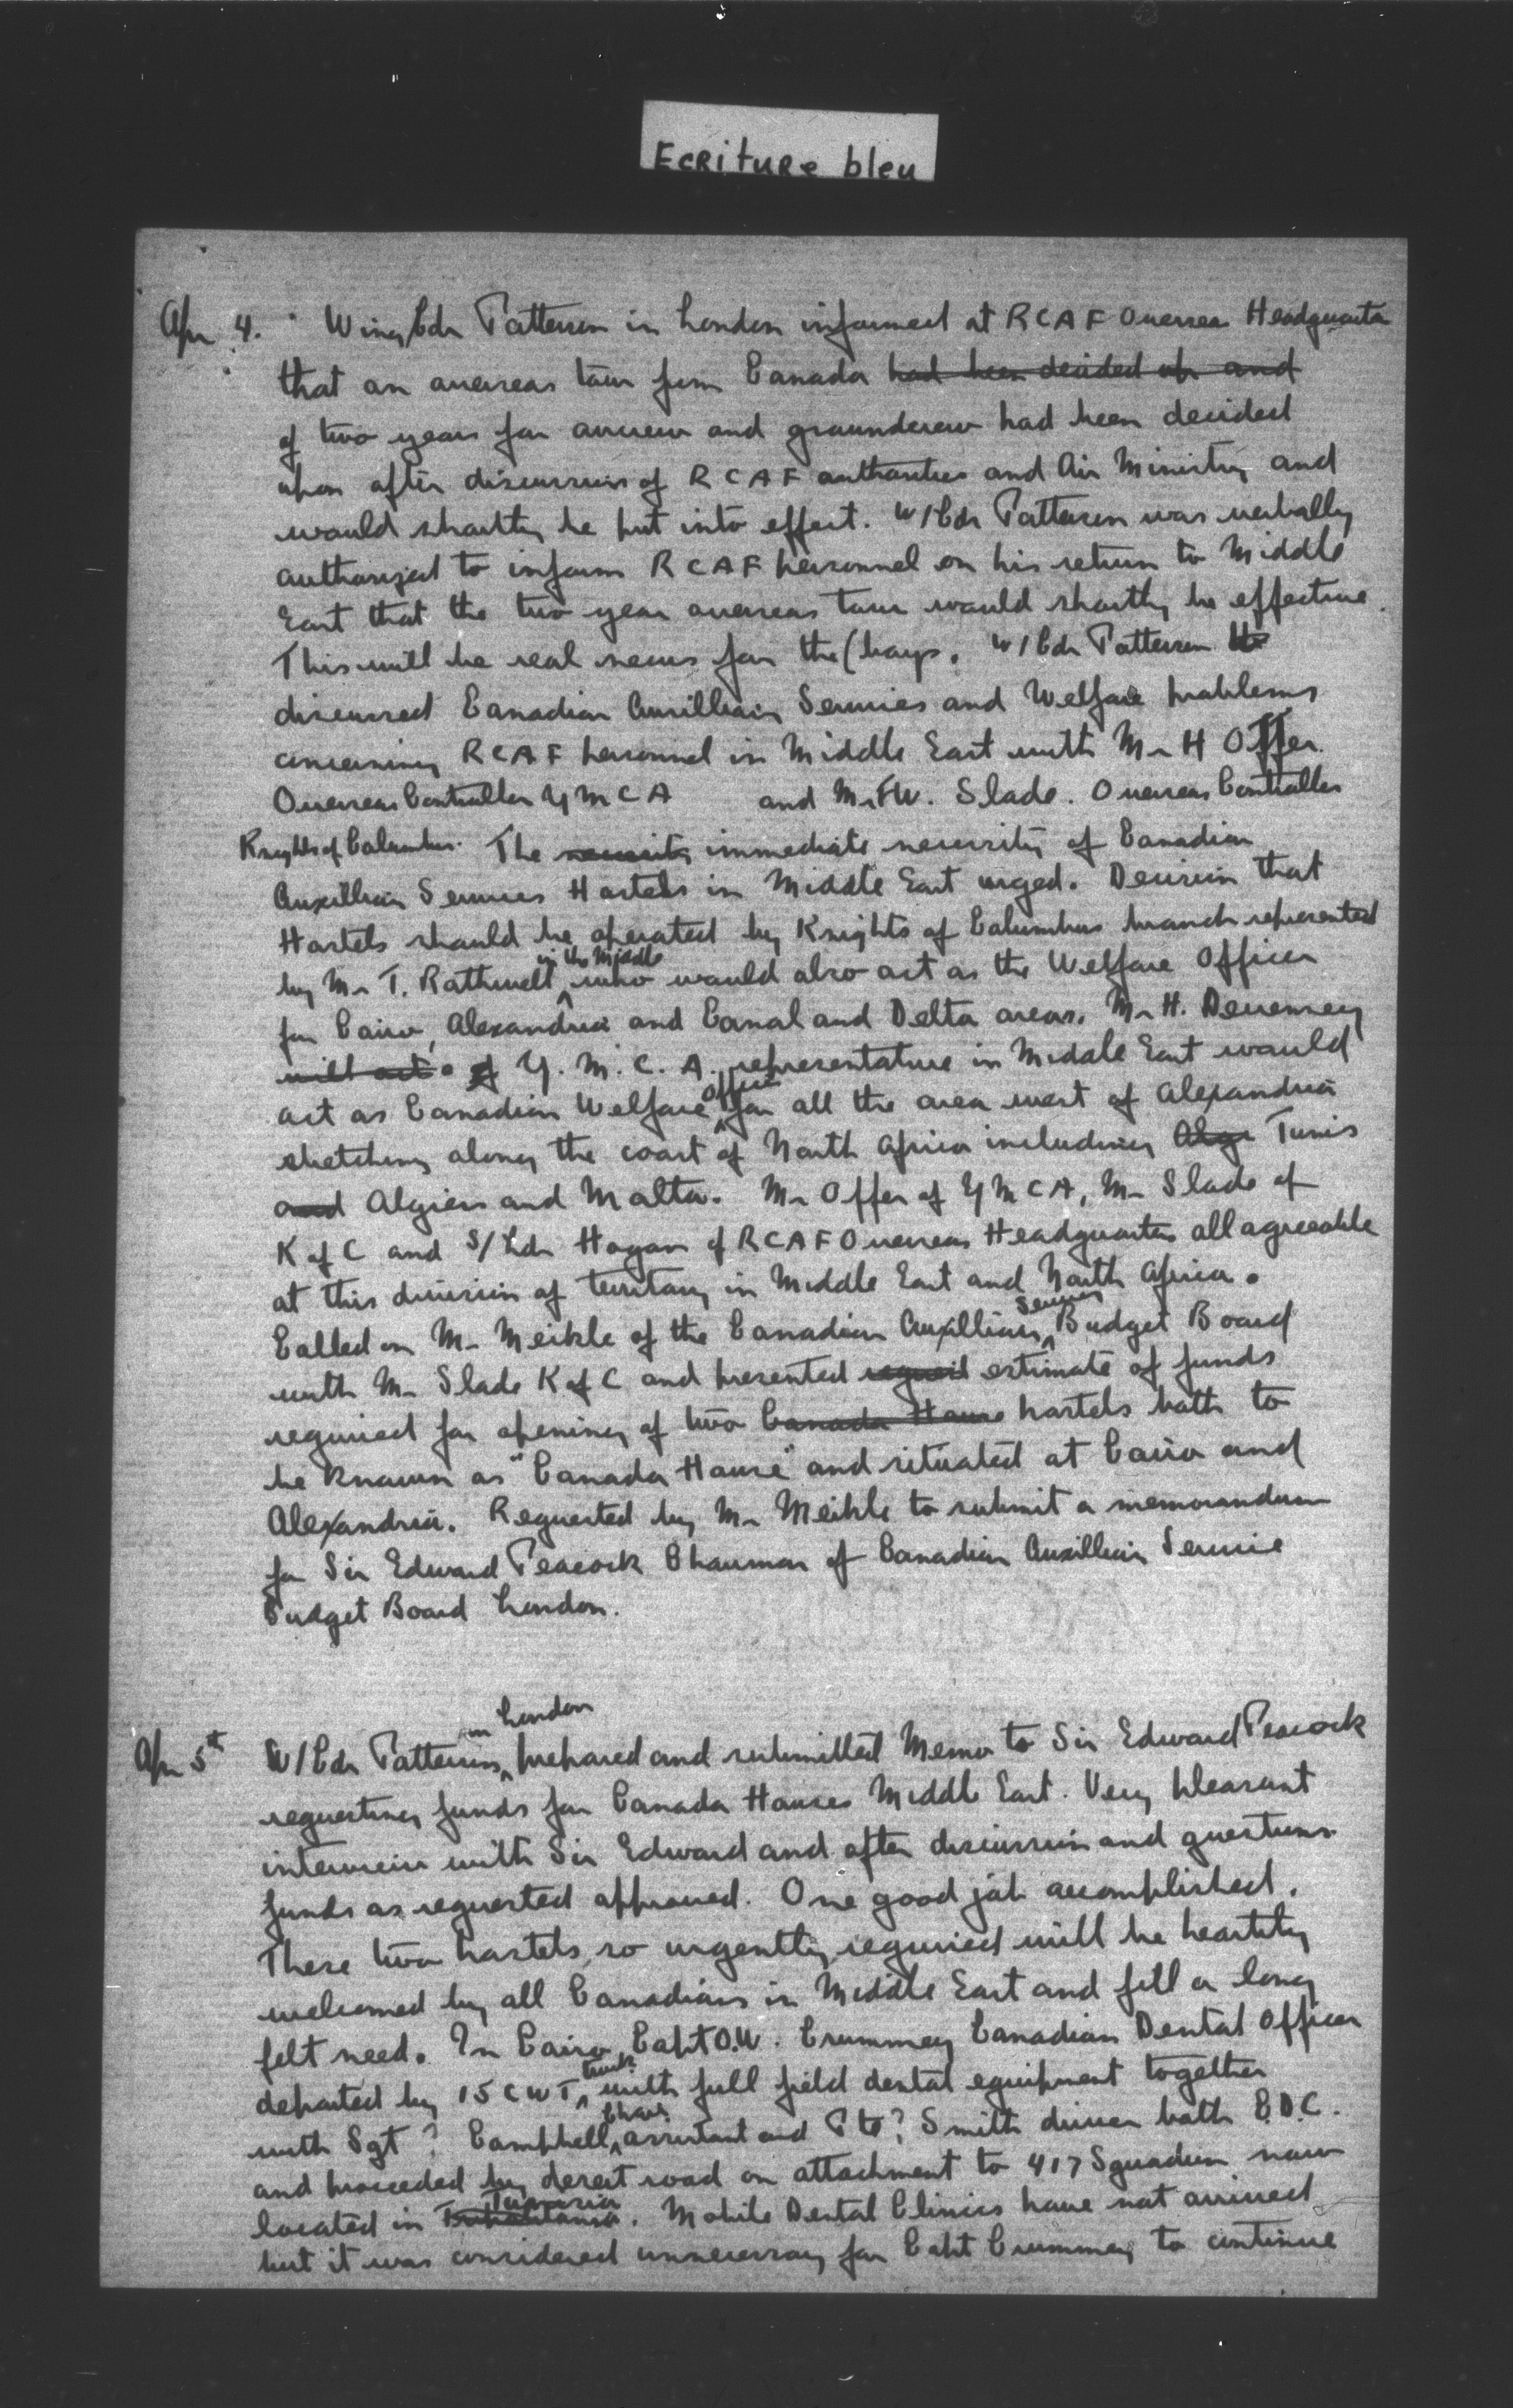 Ecriture bleu
Apr 4. Wing Cdr Patterson in London informed at RCAF Overseas Headquarters
that an overseas tour from Canada had been decided up and
of two years for aircrew and groundcrew had been decided
upon after discussions of RCAF authorities and Air Ministry and
would shortly be put into effect. W/Cdr Patterson was verbally
authorized to inform RCAF personnel on his return to Middle
East that the two year overseas tour would shortly be effective.
This will be real news for the boys. W/Cdr Patterson
discussed Canadian Auxilliary Services and Welfare problems
concerning RCAF personnel in Middle East with Mr H Offer.
Overseas Controller YMCA and Mr F.W. Slade. Overseas Controller
Knights of Columbus. The necessity immediate necessity of Canadian
Auxilliary Services Hostels in Middle East urged. Decision that
Hostels should be operated by Knights of Columbus branch represented
by Mr T. Rathwell in the Middle who would also act as the Welfare Officer
for Cairo, Alexandria and Canal and Delta areas. Mr H. Devemey
will act of Y.M.C.A. representative in Middle East would
act as Canadian Welfare Officer for all the area west of Alexandria
stretching along the coast of North Africa including Alge Tunis
and Algiers and Malta. Mr Offer of YMCA, Mr Slade of
K of C and S/Ldr Hogan of RCAF Overseas Headquarters all agreeable
at this division of territory in Middle East and North Africa.
Called on Mr Meikle of the Canadian Auxilliary Services Budget Board
with Mr Slade K of C and presented estimate of funds
required for opening of two Canada House hostels both to
be known as "Canada House" and situated at Cairo and
Alexandria. Requested by Mr Meikle to submit a memorandum
for Sir Edward Peacock Chairman of Canadian Auxilliary Service
Budget Board London.
Apr 5th W/Cdr Patterson in London prepared and submitted Memo to Sir Edward Peacock
requesting funds for Canada Houses Middle East. Very pleasant
interview with Sir Edward and after discussion and questions
funds as requested approved. One good job accomplished.
These two hostels so urgently required will be heartily
welcomed by all Canadians in Middle East and fill a long
felt need. In Cairo, Capt O.W. Crummey Canadian Dental Officer
departed by 15 CWT truck with full field dental equipment together
with Sgt ? Campbell, Chair assistant and Pte ? Smith driver both C.D.C.
and proceeded by desert road on attachment to 417 Squadron now
located in Tunisia. Mobile Dental Clinics have not arrived
but it was considered unnecessary for Capt Crummey to continue